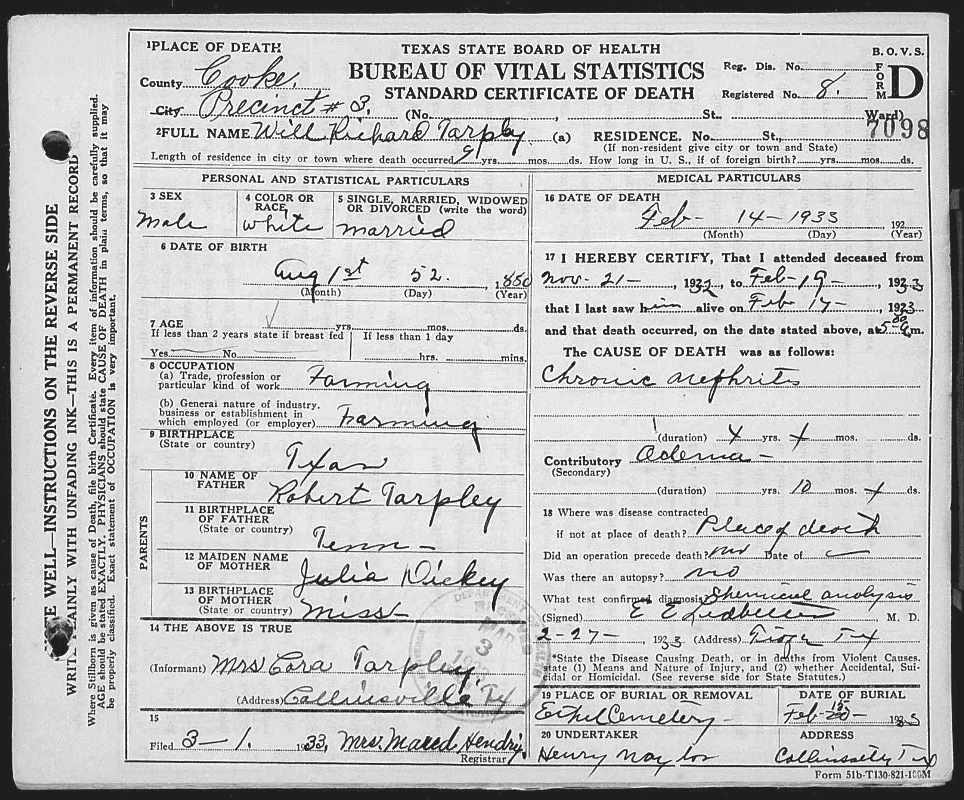 WRITE WELL—INSTRUCTIONS ON THE REVERSE SIDE
WRITE PLAINLY WITH UNFADING INK—THIS IS A PERMANENT RECORD
Where Stillborn is given as cause of Death, file birth Certificate. Every item of information should be carefully supplied.
AGE should be stated EXACTLY. PHYSICIANS should state CAUSE OF DEATH in plain terms, so that it may
be properly classified. Exact statement of OCCUPATION is very important.
TEXAS STATE BOARD OF HEALTH
BUREAU OF VITAL STATISTICS
STANDARD CERTIFICATE OF DEATH
B. O. V. S.
FORM D
Reg. Dis. No.
Registered No. 8.
1 PLACE OF DEATH
County Cooke.
City Precinct # 3. (No. , St. Ward)
7098
2 FULL NAME Will Richard Tarpley (a) RESIDENCE. No. St.,
(If non-resident give city or town and State)
Length of residence in city or town where death occurred 9 yrs. mos. ds. How long in U. S., if of foreign birth? yrs. mos. ds.
PERSONAL AND STATISTICAL PARTICULARS
3 SEX
Male
4 COLOR OR RACE
White
5 SINGLE, MARRIED, WIDOWED
OR DIVORCED (write the word)
married
6 DATE OF BIRTH
Aug 1st 52. 1850
(Month) (Day) (Year)
7 AGE yrs. mos. ds.
If less than 2 years state if breast fed
Yes No
If less than 1 day
hrs. mins.
8 OCCUPATION
(a) Trade, profession or
particular kind of work Farming
(b) General nature of industry,
business or establishment in
which employed (or employer) Farming
9 BIRTHPLACE
(State or country) Texas
PARENTS
10 NAME OF
FATHER Robert Tarpley
11 BIRTHPLACE
OF FATHER
(State or country) Tenn –
12 MAIDEN NAME
OF MOTHER Julia Dickey
13 BIRTHPLACE
OF MOTHER
(State or country) Miss –
14 THE ABOVE IS TRUE
(Informant) Mrs Cora Tarpley,
(Address) Collinsville Tx
15
Filed 3 – 1. 1933, Mrs. Hendrix.
Registrar
MEDICAL PARTICULARS
16 DATE OF DEATH
Feb – 14 – 1933 192
(Month) (Day) (Year)
17 I HEREBY CERTIFY, That I attended deceased from
Nov – 21 – , 1932, to Feb – 19 – , 1933
that I last saw him alive on Feb 17 – , 1933
and that death occurred, on the date stated above, at m.
The CAUSE OF DEATH was as follows:
Chronic nephritis
(duration) yrs. mos. ds.
Contributory Odema –
(Secondary)
(duration) yrs. 10 mos. ds.
18 Where was disease contracted
if not at place of death? Place of death
Did an operation precede death? no Date of –
Was there an autopsy? no
What test confirmed diagnosis? Chemical analysis
(Signed) E E Ledbetter M. D.
2 – 27 – 1933 (Address) Tioga Tx
*State the Disease Causing Death, or in deaths from Violent Causes,
state (1) Means and Nature of Injury, and (2) whether Accidental, Sui-
cidal or Homicidal. (See reverse side for State Statutes.)
19 PLACE OF BURIAL OR REMOVAL
Ethel Cemetery –
DATE OF BURIAL
Feb – 15 – 1933
20 UNDERTAKER
Henry Naylor
ADDRESS
Collinsville Tx
Form 51b-T130-821-100M